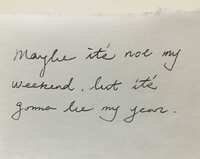 Maybe it's not my
weekend, but it's
gonna be my year.